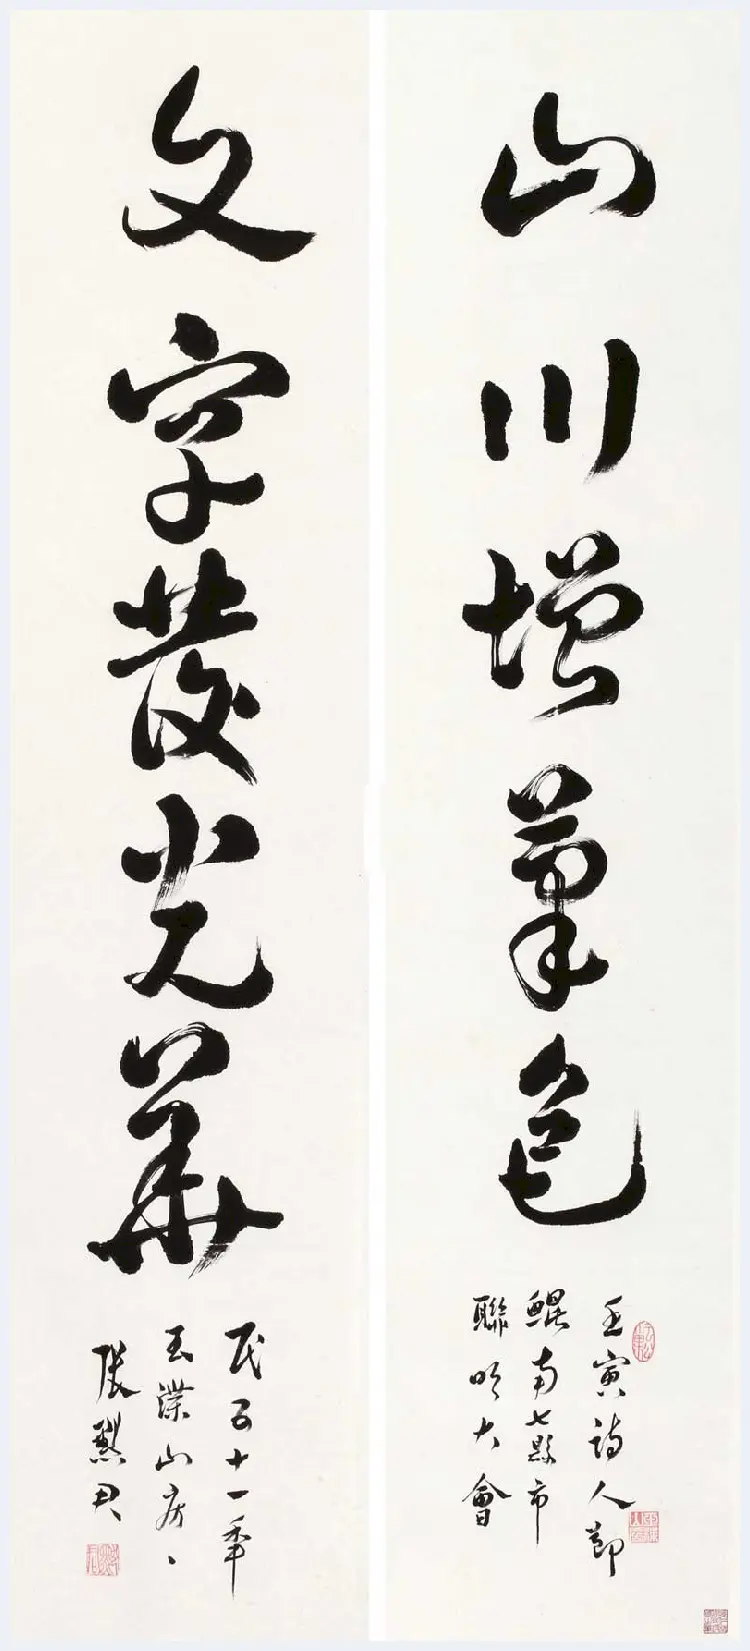 山川增筆色
壬寅詩人節
鯤南七縣市
聯吟大會
文字發光華
民五十一年
玉渫山房
張默君